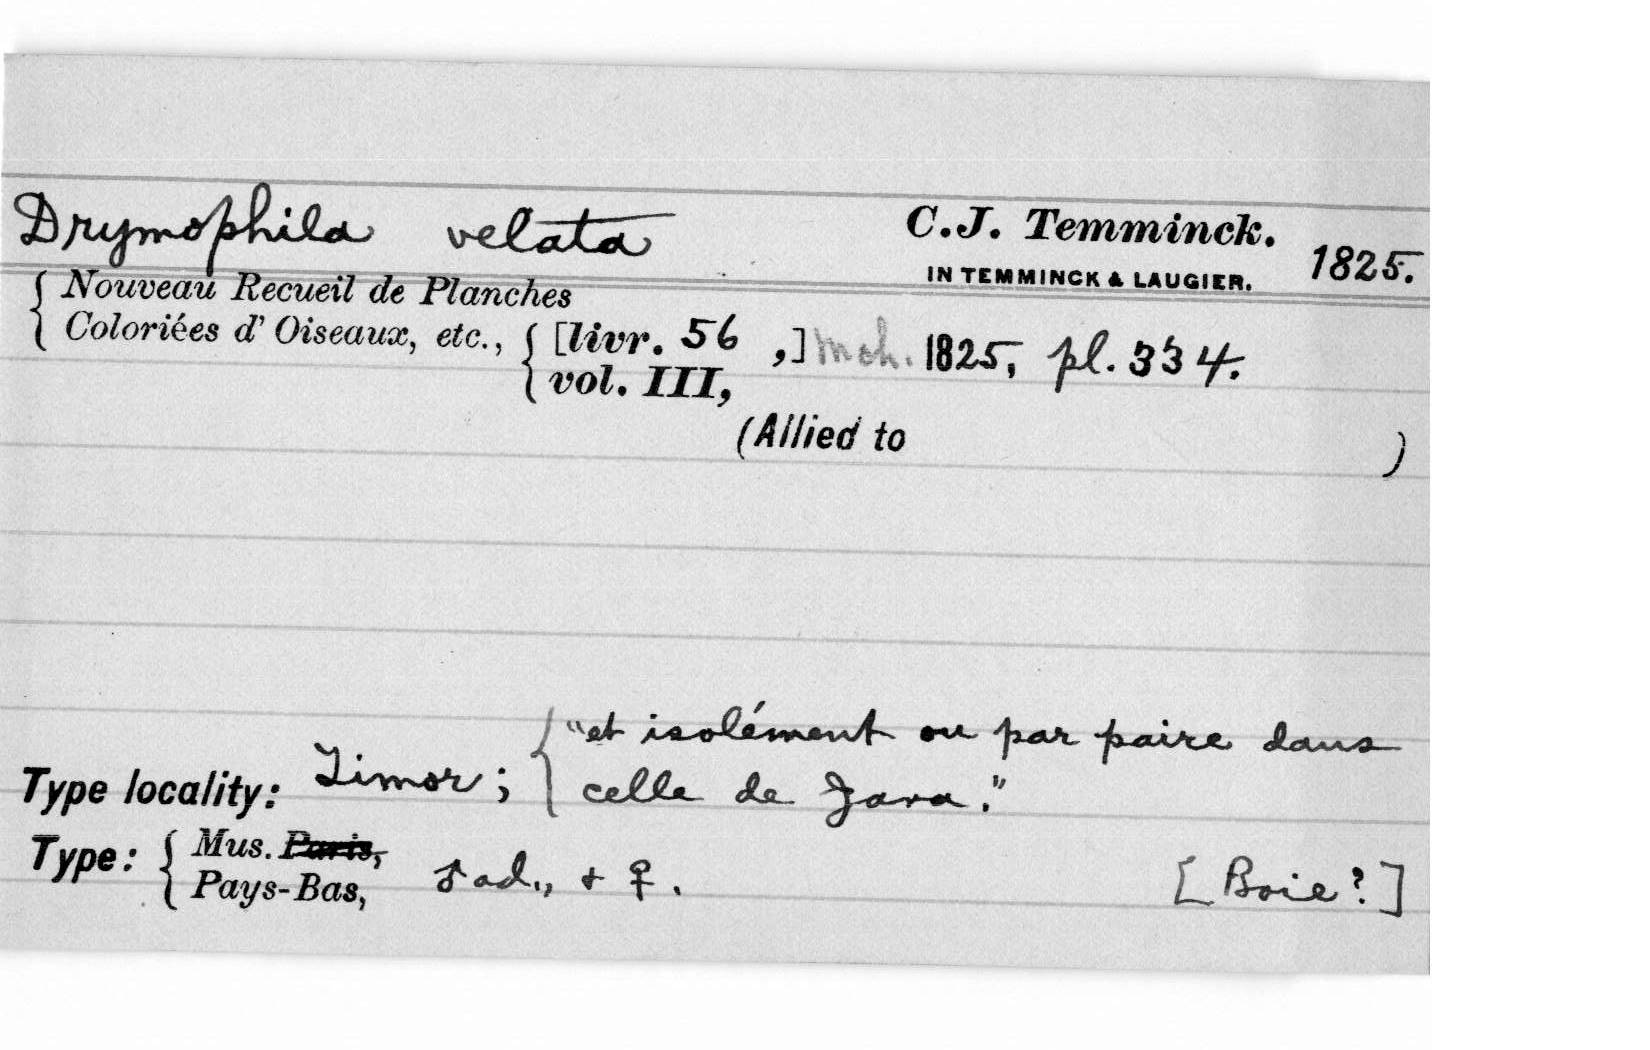 Drymophila velata C.J. Temminck.
IN TEMMINCK & LAUGIER. 1825.
{ Nouveau Recueil de Planches
Coloriées d' Oiseaux, etc., { [livr. 56 ,] 1825, pl. 334.
vol. III,
(Allied to )
Type locality: Timor; { "et isolément ou par paire dans
celle de Java."
Type: { Mus. Paris,
Pays-Bas, ♂ ad., + ♀. [Boie?]